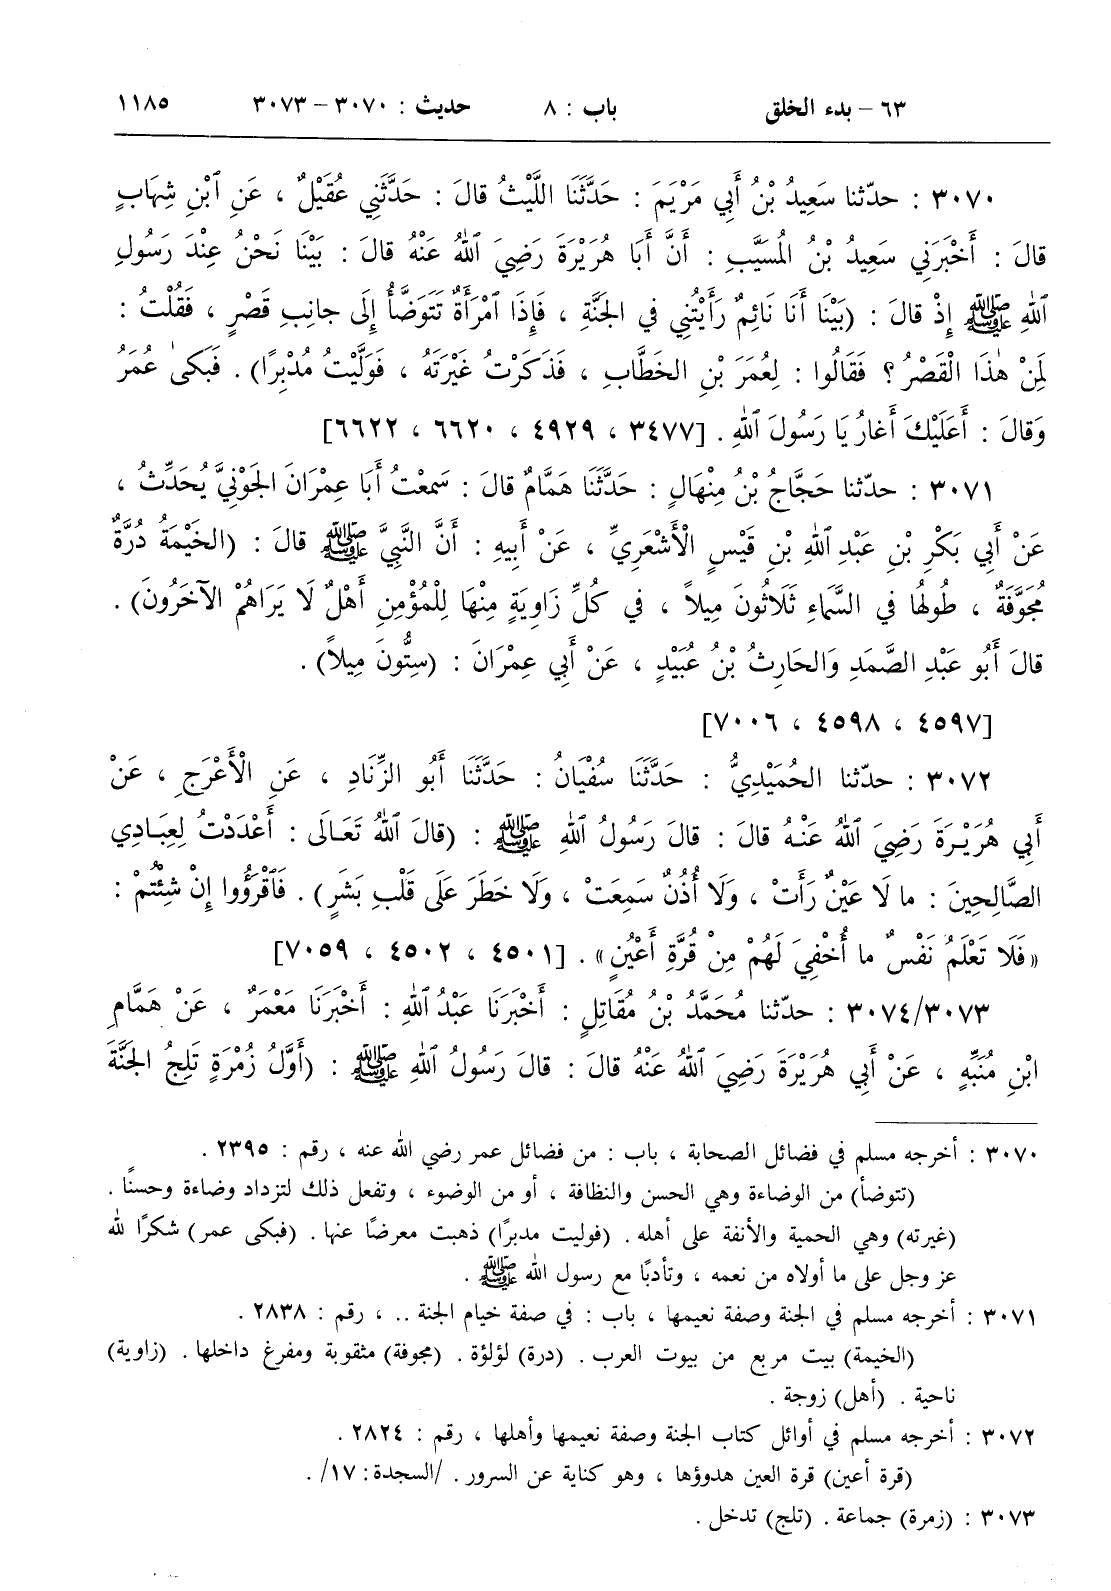 ٦٣ – بدء الخلق باب : ٨ حديث : ٣٠٧٠ – ٣٠٧٣ ١١٨٥
٣٠٧٠ : حدّثنا سَعِيدُ بْنُ أَبِي مَرْيَمَ : حَدَّثَنَا اللَّيْثُ قالَ : حَدَّثَنِي عُقَيْلٌ ، عَنِ ٱبْنِ شِهَابٍ
قالَ : أَخْبَرَنِي سَعِيدُ بْنُ المُسَيَّبِ : أَنَّ أَبَا هُرَيْرَةَ رَضِيَ ٱللهُ عَنْهُ قالَ : بَيْنَا نَحْنُ عِنْدَ رَسُولِ
ٱللهِ ﷺ إِذْ قالَ : (بَيْنَا أَنَا نَائِمٌ رَأَيْتُنِي في الجَنَّةِ ، فَإِذَا ٱمْرَأَةٌ تَتَوَضَّأُ إِلَى جانِبِ قَصْرٍ ، فَقُلْتُ :
لِمَنْ هٰذَا الْقَصْرُ ؟ فَقَالُوا : لِعُمَرَ بْنِ الخَطَّابِ ، فَذَكَرْتُ غَيْرَتَهُ ، فَوَلَّيْتُ مُدْبِرًا) . فَبَكىٰ عُمَرُ
وَقالَ : أَعَلَيْكَ أَغارُ يَا رَسُولَ ٱللهِ . [٣٤٧٧ ، ٤٩٢٩ ، ٦٦٢٠ ، ٦٦٢٢]
٣٠٧١ : حدّثنا حَجَّاجُ بْنُ مِنْهَالٍ : حَدَّثَنَا هَمَّامٌ قالَ : سَمِعْتُ أَبَا عِمْرَانَ الجَوْنِيَّ يُحَدِّثُ ،
عَنْ أَبِي بَكْرِ بْنِ عَبْدِ ٱللهِ بْنِ قَيْسٍ الْأَشْعَرِيِّ ، عَنْ أَبِيهِ : أَنَّ النَّبِيَّ ﷺ قالَ : (الخَيْمَةُ دُرَّةٌ
مُجَوَّفَةٌ ، طُولُهَا في السَّمَاءِ ثَلَاثُونَ مِيلاً ، في كُلِّ زَاوِيَةٍ مِنْهَا لِلْمُؤْمِنِ أَهْلٌ لَا يَرَاهُمُ الآخَرُونَ) .
قالَ أَبُو عَبْدِ الصَّمَدِ وَالحَارِثُ بْنُ عُبَيْدٍ ، عَنْ أَبِي عِمْرَانَ : (سِتُّونَ مِيلاً) .
[٤٥٩٧ ، ٤٥٩٨ ، ٧٠٠٦]
٣٠٧٢ : حدّثنا الحُمَيْدِيُّ : حَدَّثَنَا سُفْيَانُ : حَدَّثَنَا أَبُو الزِّنَادِ ، عَنِ الْأَعْرَجِ ، عَنْ
أَبِي هُرَيْرَةَ رَضِيَ ٱللهُ عَنْهُ قالَ : قالَ رَسُولُ ٱللهِ ﷺ : (قالَ ٱللهُ تَعَالَى : أَعْدَدْتُ لِعِبَادِي
الصَّالِحِينَ : ما لَا عَيْنٌ رَأَتْ ، وَلَا أُذُنٌ سَمِعَتْ ، وَلَا خَطَرَ عَلَى قَلْبِ بَشَرٍ) . فَٱقْرَؤُوا إِنْ شِئْتُمْ :
«فَلَا تَعْلَمُ نَفْسٌ ما أُخْفِيَ لَهُمْ مِنْ قُرَّةِ أَعْيُنٍ» . [٤٥٠١ ، ٤٥٠٢ ، ٧٠٥٩]
٣٠٧٤/٣٠٧٣ : حدّثنا مُحَمَّدُ بْنُ مُقَاتِلٍ : أَخْبَرَنَا عَبْدُ ٱللهِ : أَخْبَرَنَا مَعْمَرٌ ، عَنْ هَمَّامِ
ابْنِ مُنَبِّهٍ ، عَنْ أَبِي هُرَيْرَةَ رَضِيَ ٱللهُ عَنْهُ قالَ : قالَ رَسُولُ ٱللهِ ﷺ : (أَوَّلُ زُمْرَةٍ تَلِجُ الجَنَّةَ
٣٠٧٠ : أخرجه مسلم في فضائل الصحابة ، باب : من فضائل عمر رضي الله عنه ، رقم : ٢٣٩٥ .
(تتوضأ) من الوضاءة وهي الحسن والنظافة ، أو من الوضوء ، وتفعل ذلك لتزداد وضاءة وحسنًا .
(غيرته) وهي الحمية والأنفة على أهله . (فوليت مدبرًا) ذهبت معرضًا عنها . (فبكى عمر) شكرًا لله
عز وجل على ما أولاه من نعمه ، وتأدبًا مع رسول الله ﷺ .
٣٠٧١ : أخرجه مسلم في الجنة وصفة نعيمها ، باب : في صفة خيام الجنة .. ، رقم : ٢٨٣٨ .
(الخيمة) بيت مربع من بيوت العرب . (درة) لؤلؤة . (مجوفة) مثقوبة ومفرغ داخلها . (زاوية)
ناحية . (أهل) زوجة .
٣٠٧٢ : أخرجه مسلم في أوائل كتاب الجنة وصفة نعيمها وأهلها ، رقم : ٢٨٢٤ .
(قرة أعين) قرة العين هدوؤها ، وهو كناية عن السرور . /السجدة : ١٧/ .
٣٠٧٣ : (زمرة) جماعة . (تلج) تدخل .